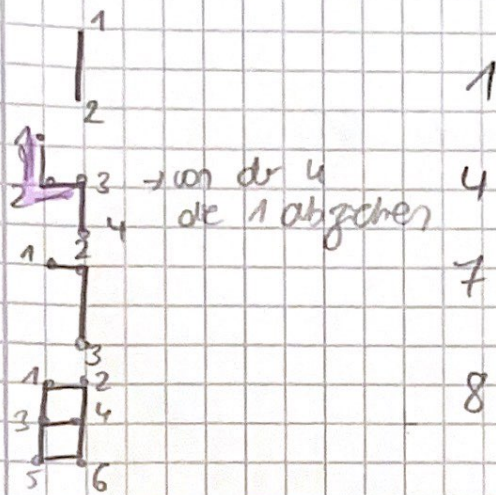 1
1
2
1
2 3 → von der 4 4
die 1 abziehen
4
2
1 7
3
1 2 8
3 4
5 6